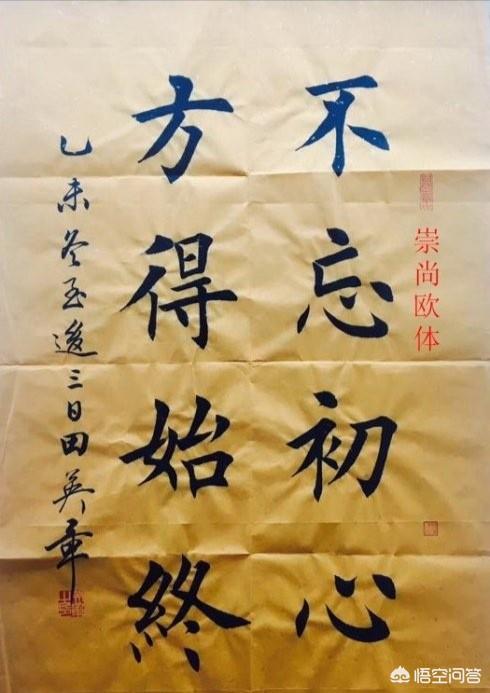 不忘初心
方得始終
乙未冬至后三日田英章
崇尚欧体
悟空问答